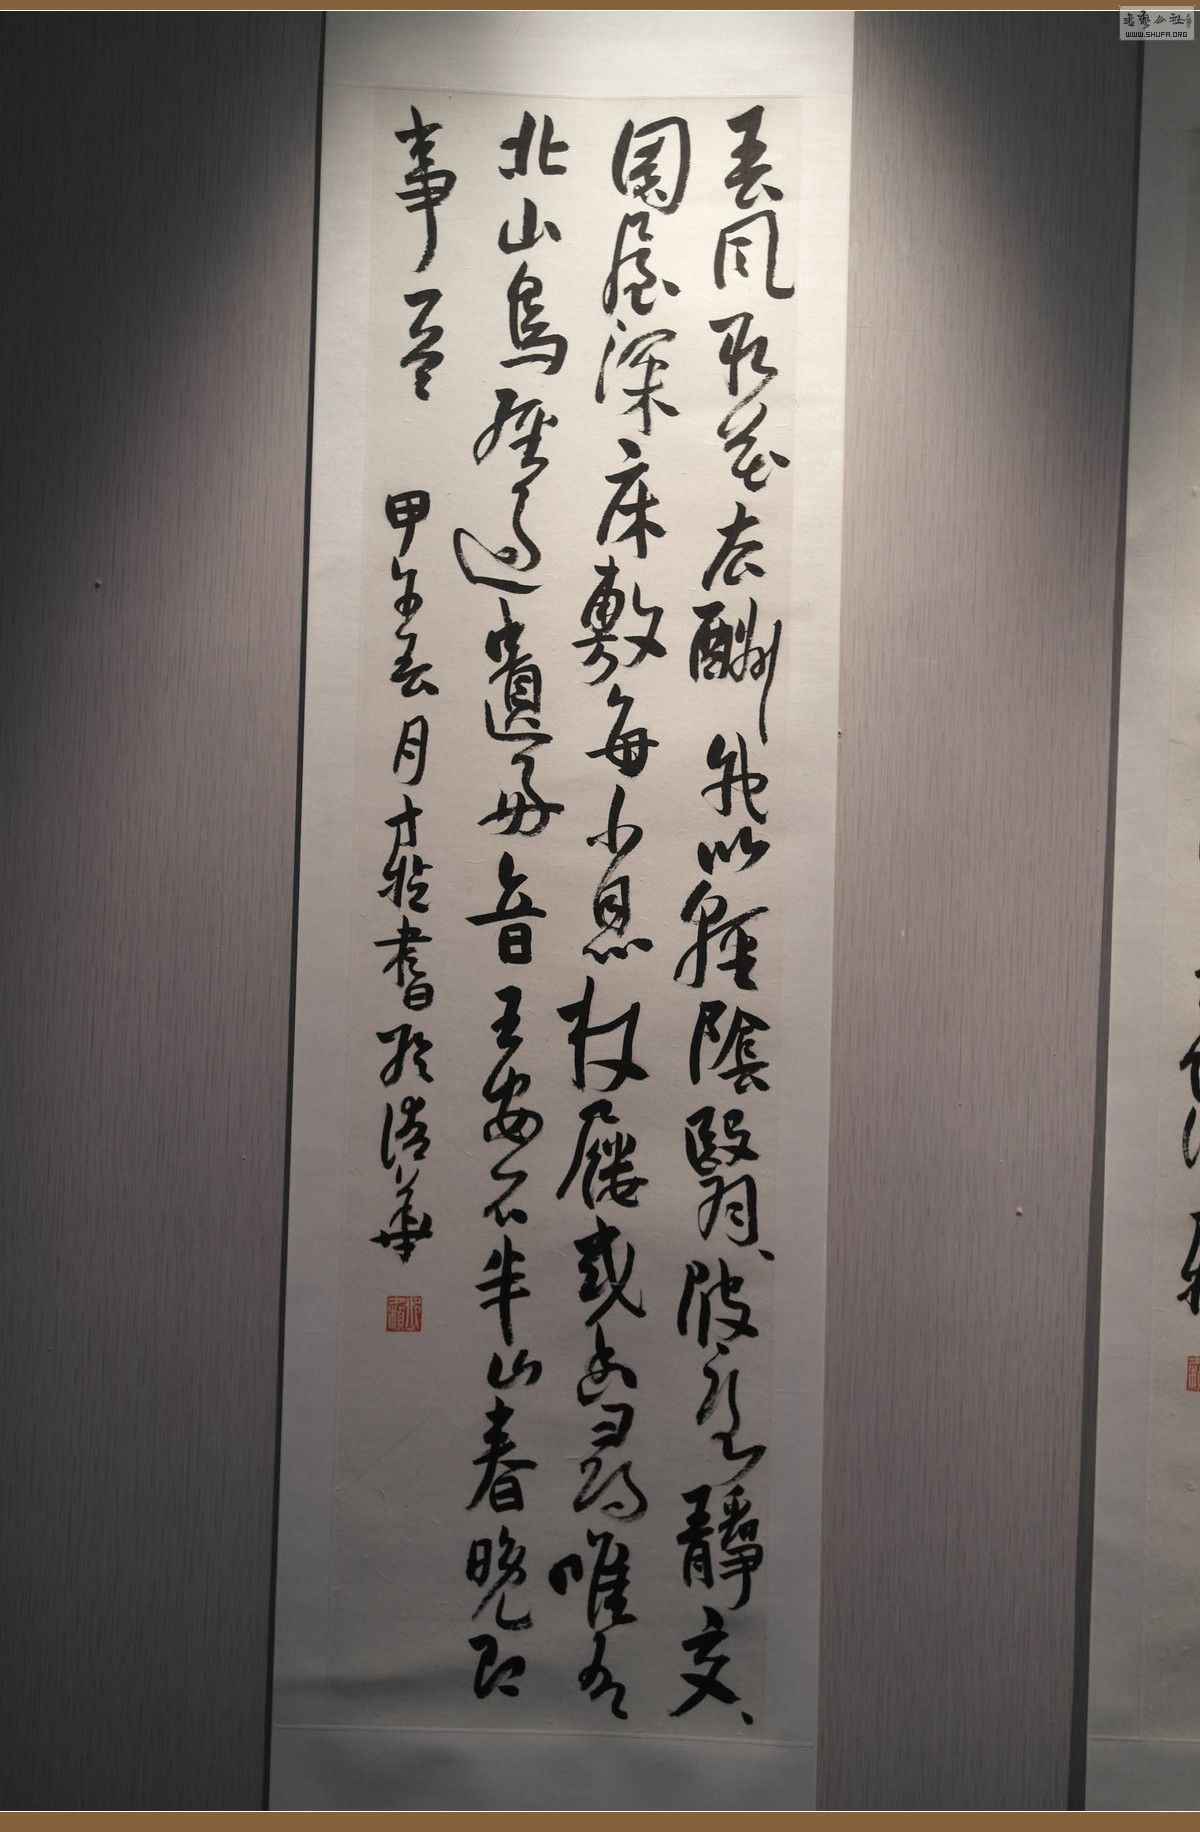 春風取花去酬我以輕陰翳、陂路靜交、
園屋深床敷每小息杖屨或幽尋唯有
北山鳥經過遺好音王安石半山春晚即
事 甲午春月 書於清華
书艺公社
WWW.SHUFA.ORG